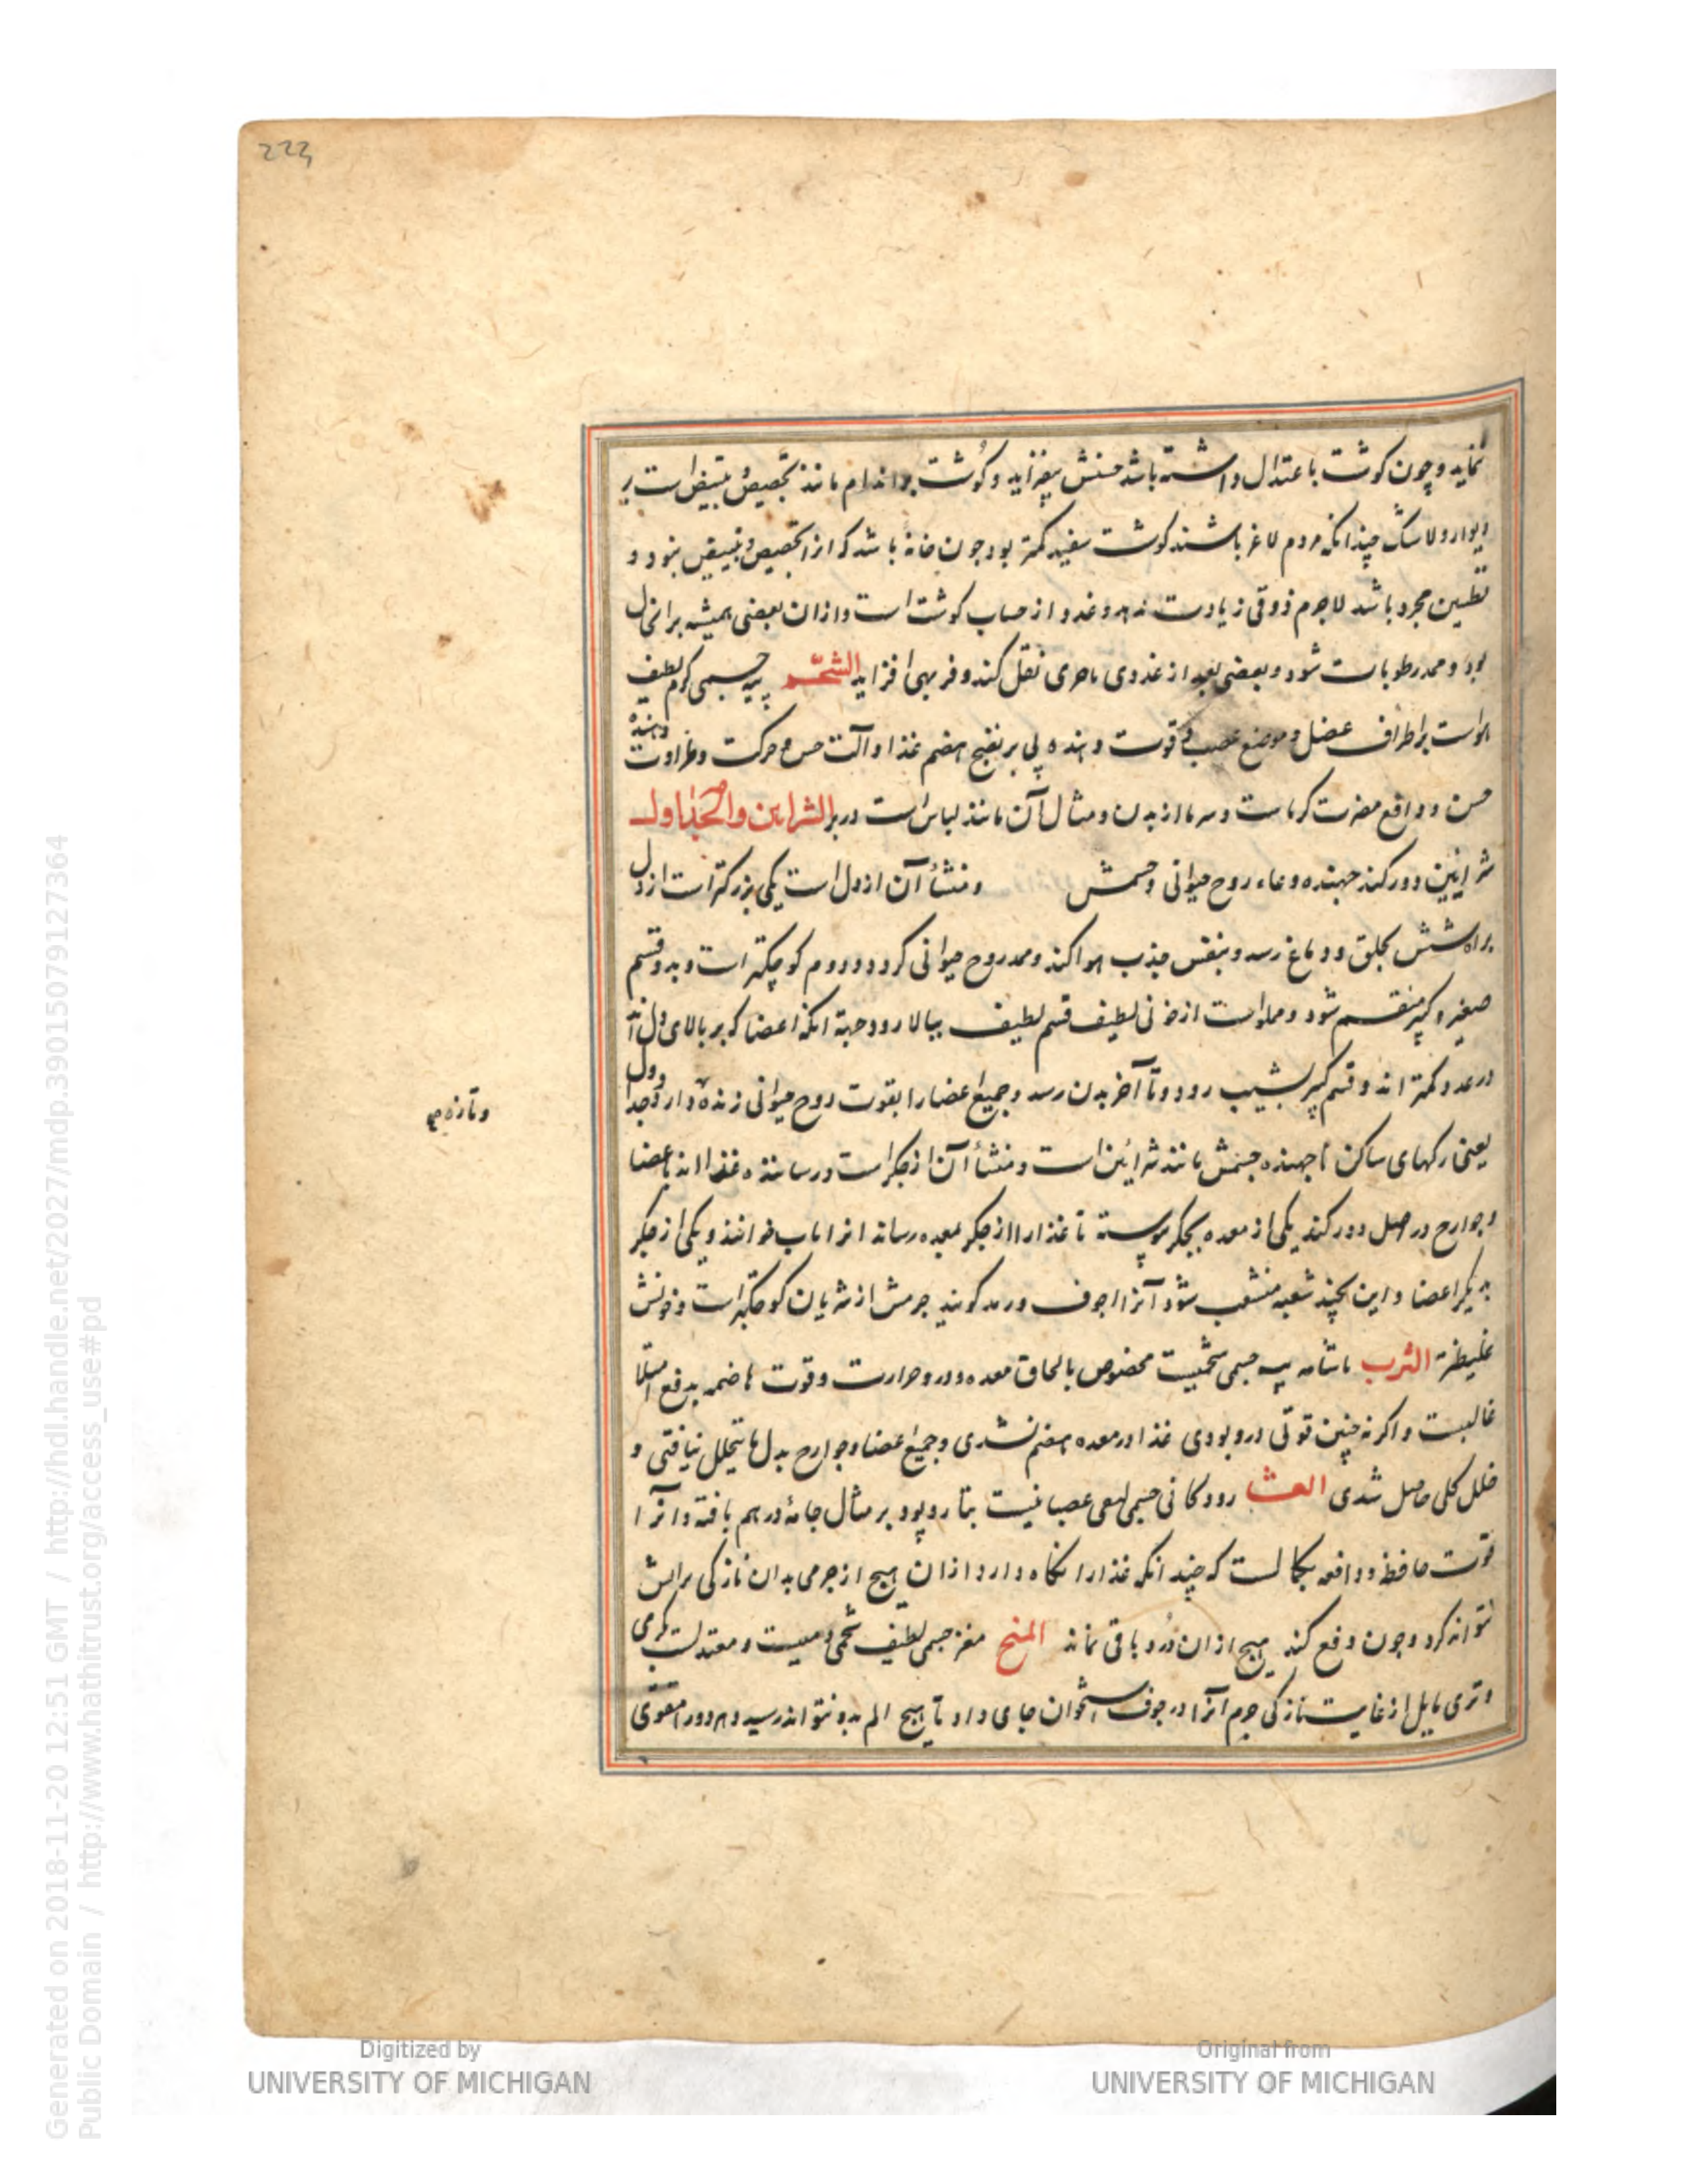 223
نماید و چون کوشت باعتدال داشته باشد حسنش بیفزاید و کوشت بر اندام مانند تجصیص و تبییض است بر
دیوار و لاشک چندانکه مردم لاغر باشند کوشت سفید کمتر بود چون خانه باشد که از تجصیص و تبییض بنود و
تطیین مجرد باشد لاجرم ذوقی زیادت ندهد و غدد از حساب کوشت است و از ان بعضی همیشه بر انحال
بود و ممد رطوبات شود و بعضی بعد از غددی ماحری نقل کند و فربهی افزاید الشحم پیه جسمی کرم لطیف
هواست بر اطراف عضل و موضع عصب و قوت دهنده پی بر نضج هضم غذا و آلت حس و حرکت و طراوت دهنده
حسن و دافع مضرت کرماست و سرما از بدن و مثال آن مانند لباس است در بر الشرایین والجداول
شرایین دو رکند جهنده وعاء روح حیوانی و جسمش و منشأ آن از دل است یکی بزرکتر است از دل
براه شش بحلق و دماغ رسد و بنفس جذب هوا کند و ممد روح حیوانی کردد و دوم کوچکتر است و بدو قسم
صغیر و کبیر منقسم شود و مملو است از خونی لطیف قسم لطیف ببالا رود جهة انکه اعضا که بر بالای دل اند
در عدد کمتر اند و قسم کبیر بشیب رود و تا آخر بدن رسد و جمیع اعضا را بقوت روح حیوانی زنده دارد و جداول
و تازه صح
یعنی رکهای ساکن ناجهنده جسمش مانند شرایین است و منشأ آن از جکر است و رساننده غذا اند باعضا
و جوارح در اصل دو رکند یکی از معده بجکر پیوسته تا غذا را از جکر بمعده رساند انرا باب خوانند و یکی از جکر
بدیکر اعضا و این بچند شعبه منشعب شود آنرا اجوف و ورید کویند جرمش از شریان کوچکتر است و خونش
غلیظتر الثرب باشامه پیه جسمی شحمیست مخصوص بالحاق معده و درو حرارت و قوت هاضمه بدفع امتلا
غالبست و اکر نه چنین قوتی درو بودی غذا در معده هضم نشدی و جمیع اعضا و جوارح بدل ما یتحلل نیافتی و
خلل کلی حاصل شدی رودکانی جسمی لیفی عصبانیست بتار و پود بر مثال جامه در هم بافته و انرا
قوت حافظه و دافعه بکمالست که چندانکه غذا را نکاه دارد از ان هیچ از جرمی بدان نازکی ترابش
نتواند کرد و چون دفع کند هیچ از ان درو باقی نماند المخ مغز جسمی لطیف شحمی دمیست و معتدلست کرمی
و تری مایل از غایت نازکی جرم آنرا در جوف استخوان جای داد تا هیچ الم بدو نتواند رسید و هر دو را مقوی
Digitized by
UNIVERSITY OF MICHIGAN
Original from
UNIVERSITY OF MICHIGAN
Generated on 2018-11-20 12:51 GMT / http://hdl.handle.net/2027/mdp.39015079127364
Public Domain / http://www.hathitrust.org/access_use#pd